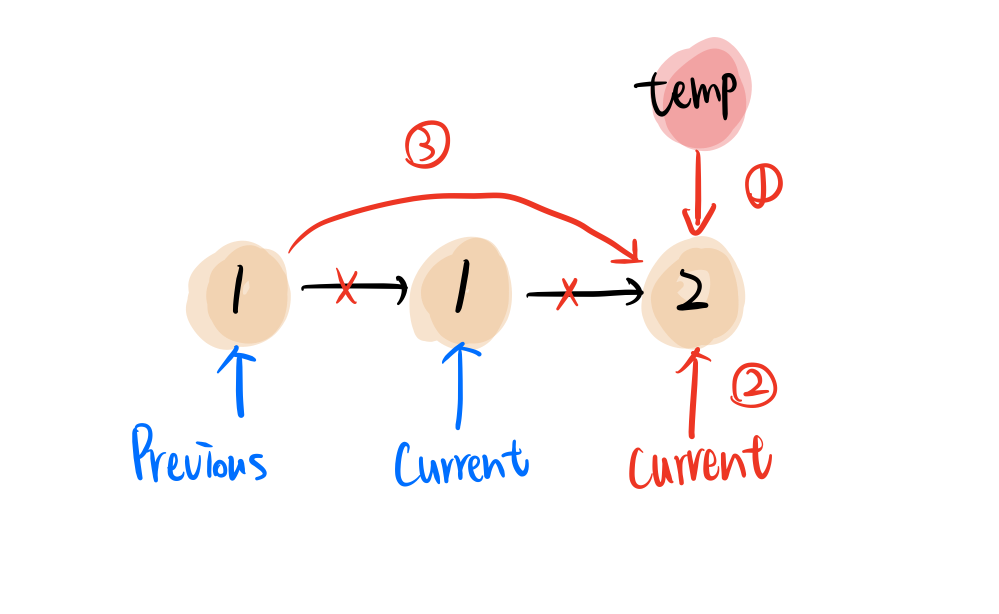 temp
③
①
1
1
2
②
Previous
Current
Current